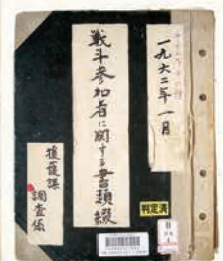 一九六二年 一月
戦斗参加者に関する書類綴
援護課
調査係
判定済